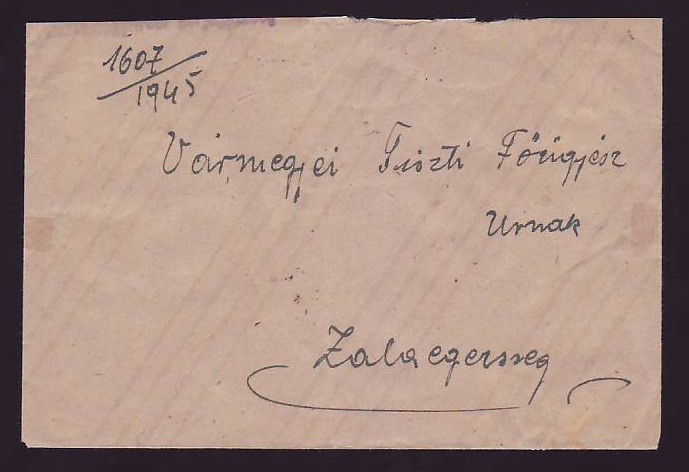 1607
1945
Vármegyei Tiszti Főügyész
Urnak
Zalaegersseg